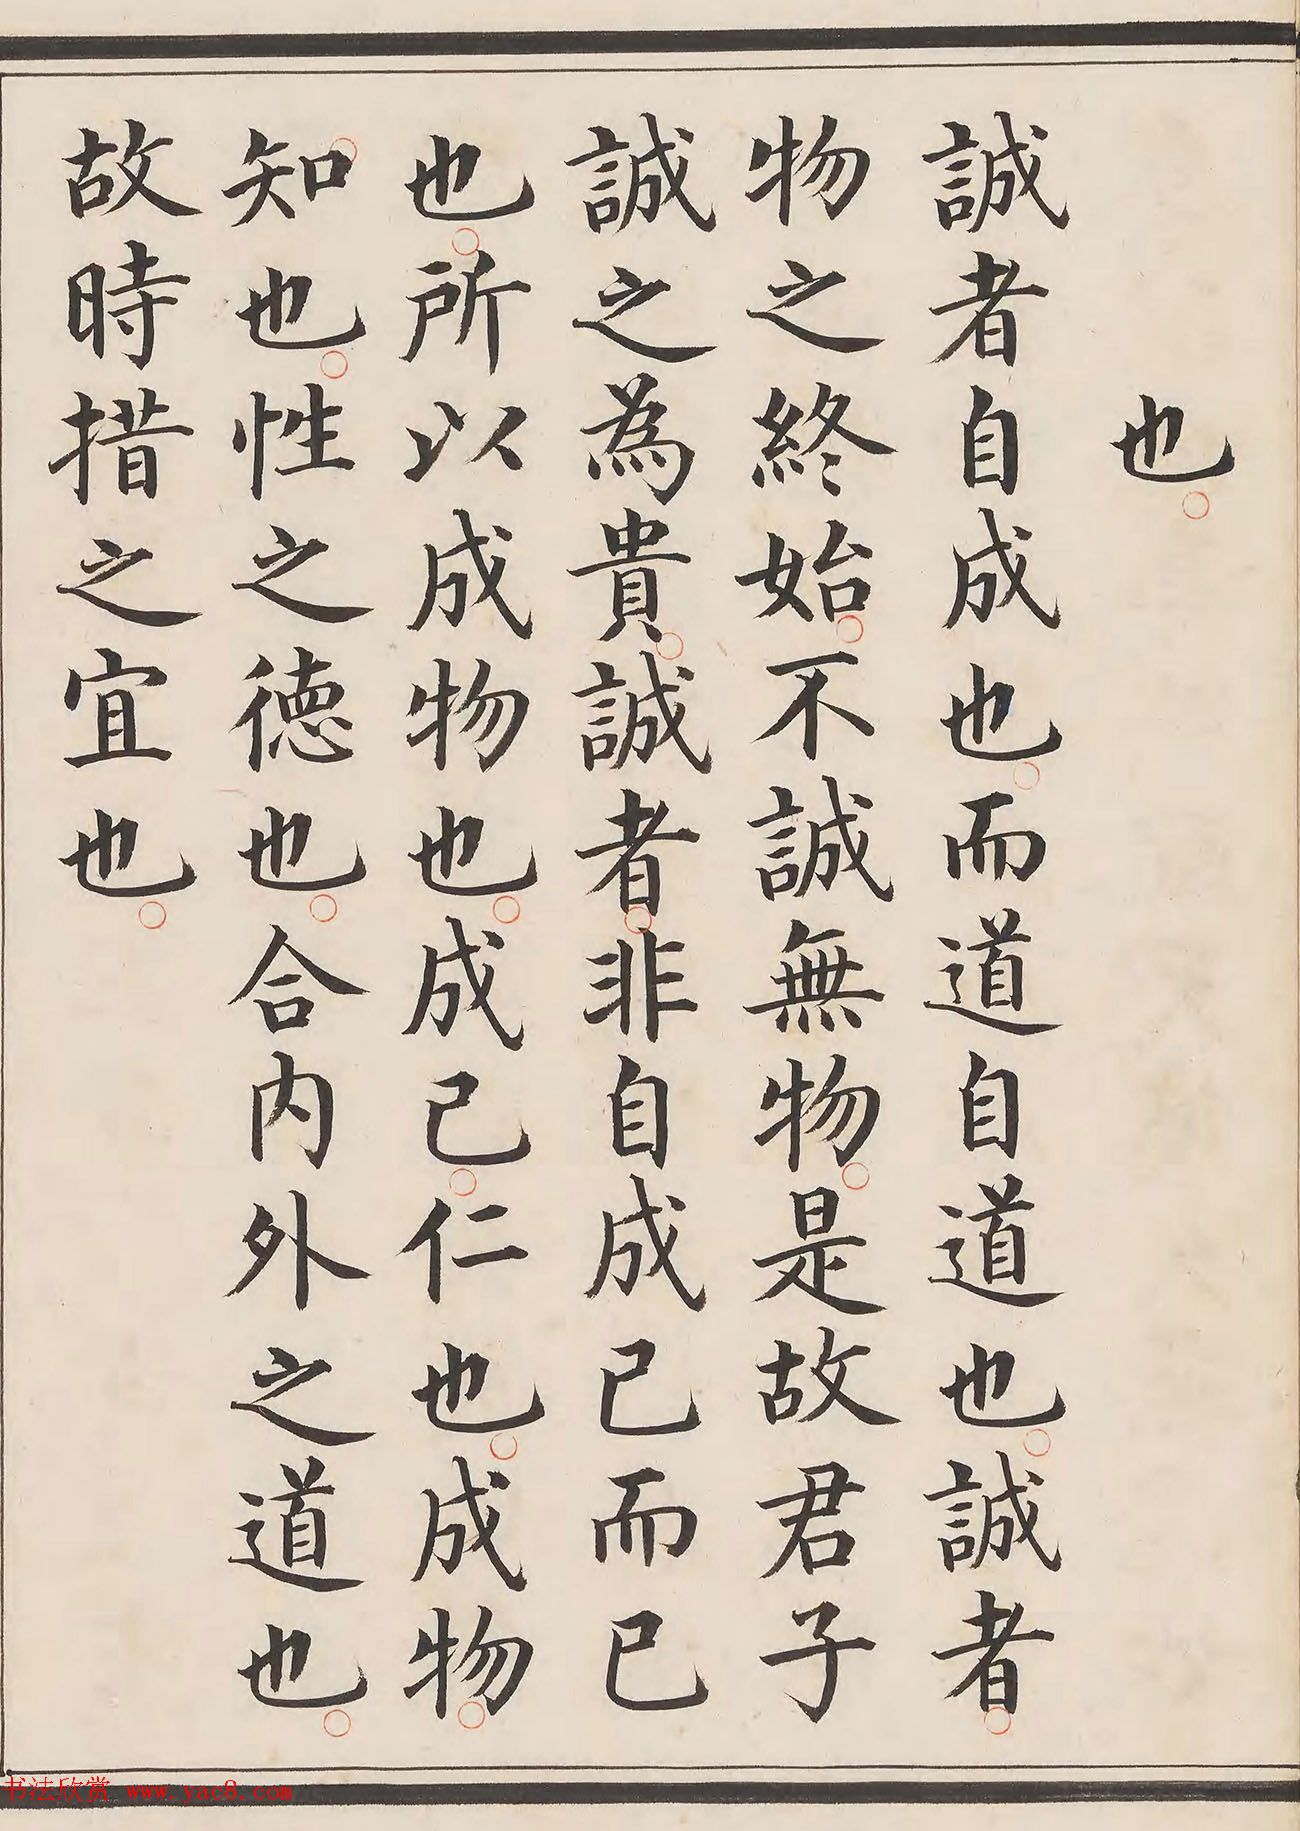 也
誠者自成也而道自道也誠者
物之終始不誠無物是故君子
誠之為貴誠者非自成已而已
也所以成物也成已仁也成物
知也性之德也合內外之道也
故時措之宜也
书法欣赏 www.yac8.com